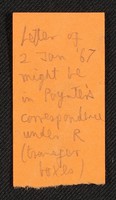 Letter of
2 Jan '67
might be
in Poynter's
correspondence
under R
(transfer
boxes)